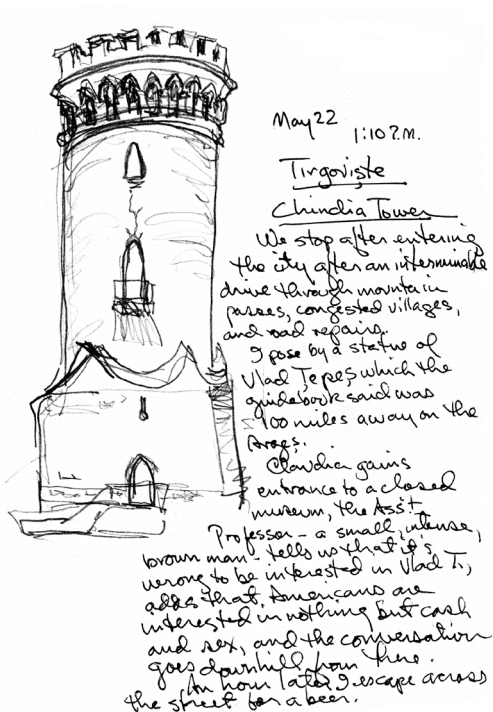 May 22
1:10 P.M.
Tirgovişte
Chindia Tower
We stop after entering
the city after an interminable
drive through mountain
passes, congested villages,
and road repairs.
I pose by a statue of
Vlad Ţepeş which the
guidebook said was
100 miles away on the
Argeş.
Claudia gains
entrance to a closed
museum, the Ass't
Professor – a small, intense,
brown man – tells us that it's
wrong to be interested in Vlad T.,
adds that Americans are
interested in nothing but cash
and sex, and the conversation
goes downhill from there.
An hour later I escape across
the street for a beer.